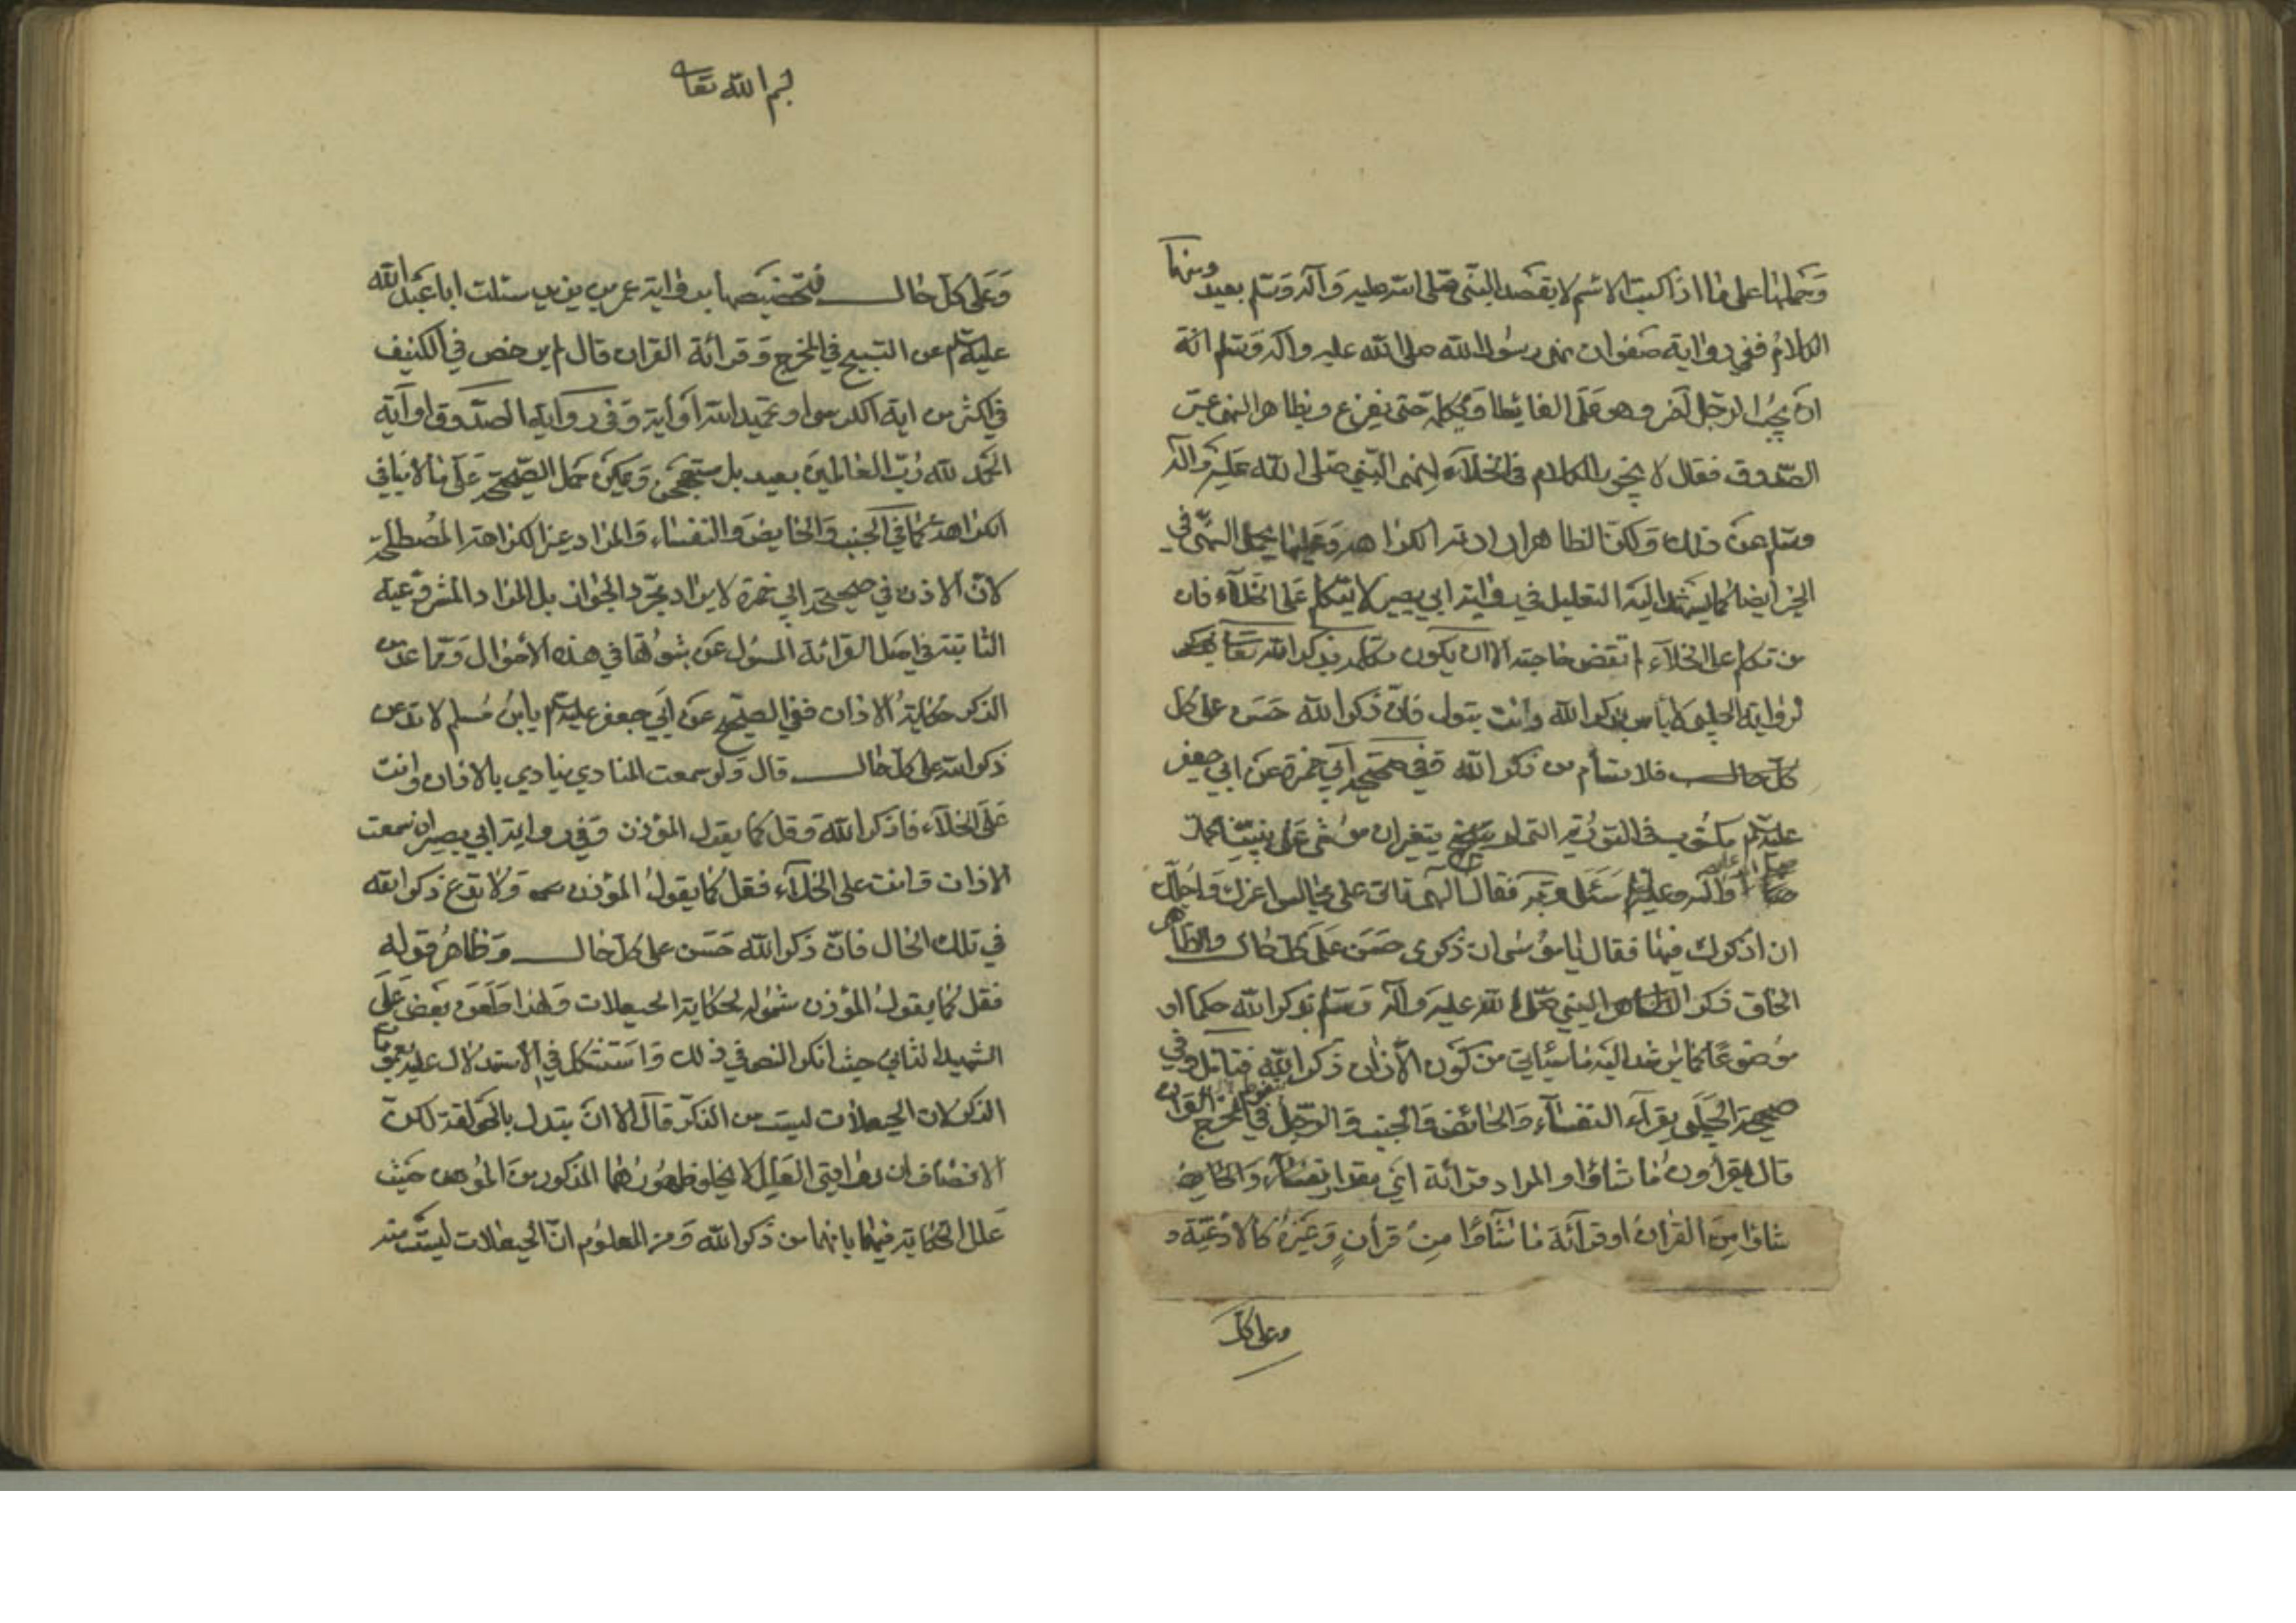 وحملها على ما اذا كتب الاسم لا بقصد النبي صلى الله عليه وآله وسلم بعيد ومنها
الكلام ففي رواية صفوان نهى رسول الله صلى الله عليه وآله وسلم انه
ان يجيب الرجل آخر وهو على الغائط او يكلمه حتى يفرغ وبظاهر النهي عبر
الصدوق فقال لا يجوز الكلام في الخلاء لنهي النبي صلى الله عليه وآله
وسلم عن ذلك ولكن الظاهر ارادته الكراهه وعليها يحمل النهي في
الخبر ايضا كما يرشد اليه التعليل في رواية ابي بصير لا يتكلم على الخلاء فان
من تكلم على الخلاء لم تقض حاجته الا ان يكون تكلمه بذكر الله تعالى
لرواية الحلبي لا بأس بذكر الله وانت تبول فان ذكر الله حسن على كل
كل حال فلا تسأم من ذكر الله وفي صحيحة ابي حمزة عن ابي جعفر
عليه السلم مكتوب في التورية التي لم يتغير ان موسى على نبينا
وآله وعليه سئل ربه فقال الهي يأتي على مجالس اعزك واجلك
ان اذكرك فيها فقال يا موسى ان ذكري حسن على كل حال والظاهر
الحاق ذكر النبي صلى الله عليه وآله وسلم بذكر الله حكما او
موضوعا كما يرشد اليه ما سيأتي من كون الاذان ذكر الله فتأمل وفي
صحيحة الحلبي يقرأء النفساء والحائض والجنب والرجل في المخرج القرآن
قال يقرأون ما شاؤا والمراد قرائة اي مقدار والحايض
شاؤا من القرآن او قرآئة ما شآؤا من قرأن وغيره كالادعية و
وعلى كل
بسم الله تعا
وعلى كل حال فتخصيصها برواية عمر بن يزيد سئلت ابا عبد الله
عليه السلم عن التسبيح في المخرج وقرائة القران قال لم يرخص في الكنيف
في اكثر من اية الكرسي او تحميد الله او اية وفي رواية الصدوق او آية
الحمد لله رب العالمين بعيد بل مستهجن ويمكن حمل الصحيحة على ما لا ينافي
الكراهة كما في الجنب والحايض والنفساء والمراد غير الكراهة المصطلحة
لان الاذن في صحيحة ابي حمزة لا يراد مجرد الجواز بل المراد المشروعية
الثابتة في اصل القرائة المسؤل عن ثبوتها في هذه الاحوال ومما عد من
الذكر حكاية الاذان ففي الصحيح عن ابي جعفر عليه السلم يا بن مسلم لا تدعن
ذكر الله على كل حال قال ولو سمعت المنادي ينادي بالاذان وانت
على الخلاء فاذكر الله وقل كما يقول المؤذن وفي رواية ابي بصير ان سمعت
الاذان وانت على الخلاء فقل كما يقول المؤذن ولا تدع ذكر الله
في تلك الحال فان ذكر الله حسن على كل حال وظاهر قوله
فقل كما يقول المؤذن شموله لحكاية الحيعلات ولهذا طعن بعض على
الشهيد الثاني حيث انكر النص في ذلك واستشكل في الاستدلال عليه بعموم
الذكر لان الحيعلات ليست من الذكر قال الا ان يبدل بالحولقة لكن
الانصاف ان روايتي العلل لا يخلو ظهورهما المذكور من الموهن حيث
علل الحكاية فيها بانها من ذكر الله ومن المعلوم ان الحيعلات ليست منه